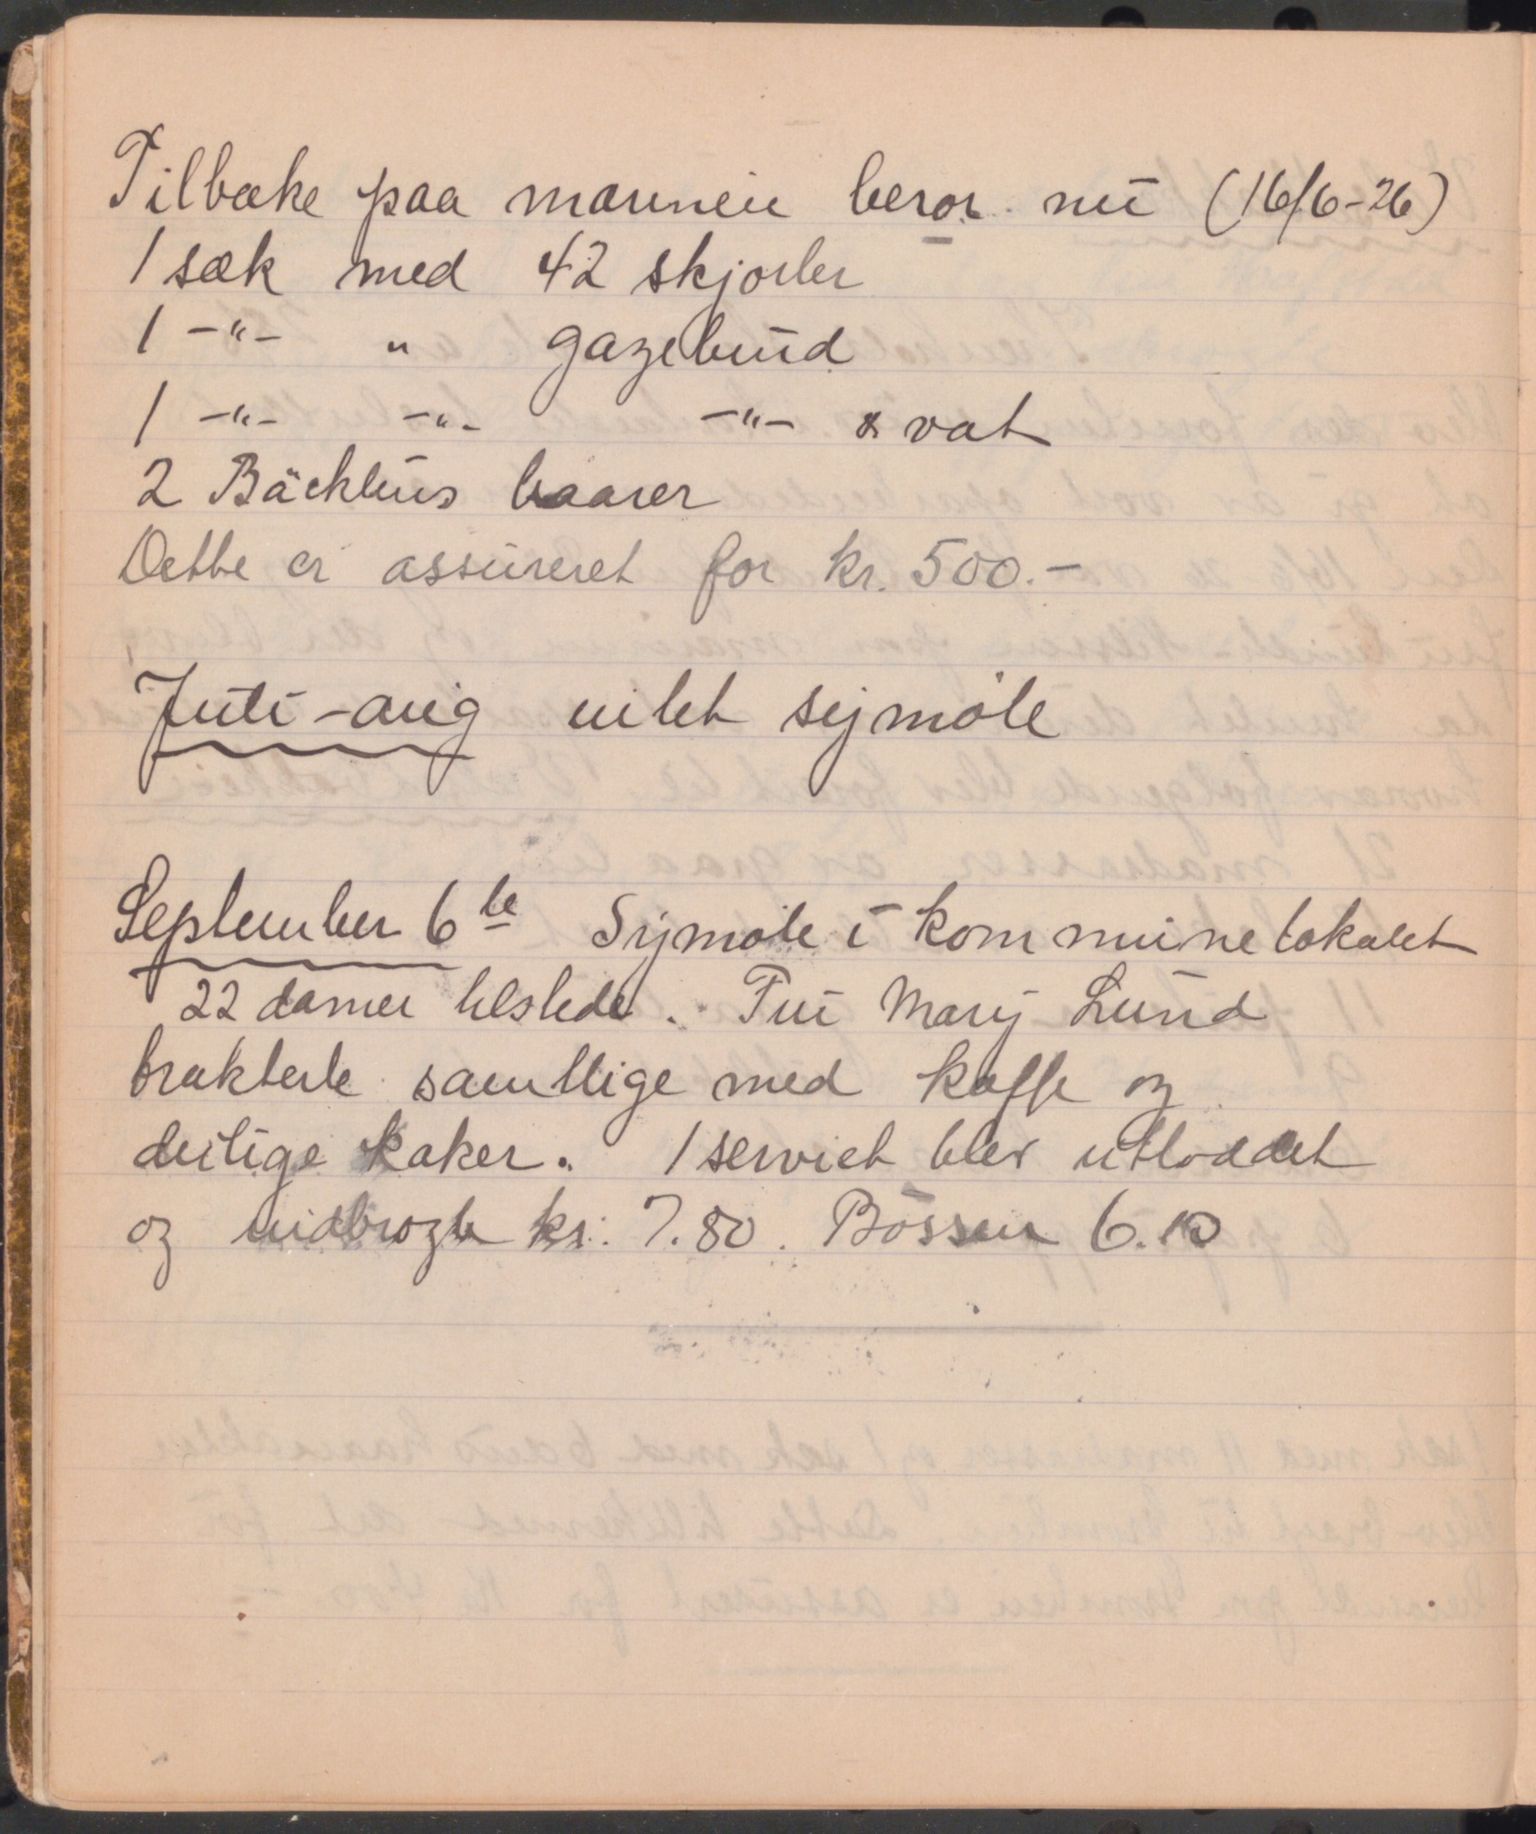 Tilbake paa marinen beror nu (16/6-26)
1 sæk med 42 skjorter
1 -"- " gazebind
1 -"- -"- -"- & vat
2 Bäcklius baarer
Dette er assureret for kr. 500.-
Juli-aug intet symöte
September 6te Symöte i kommunelokalet
22 damer tilstede. Fru Mary Lund
trakterte samtlige med kaffe og
deilige kaker. 1 serviet blev utloddet
og indbragte kr. 7.80. Bössen 6.10